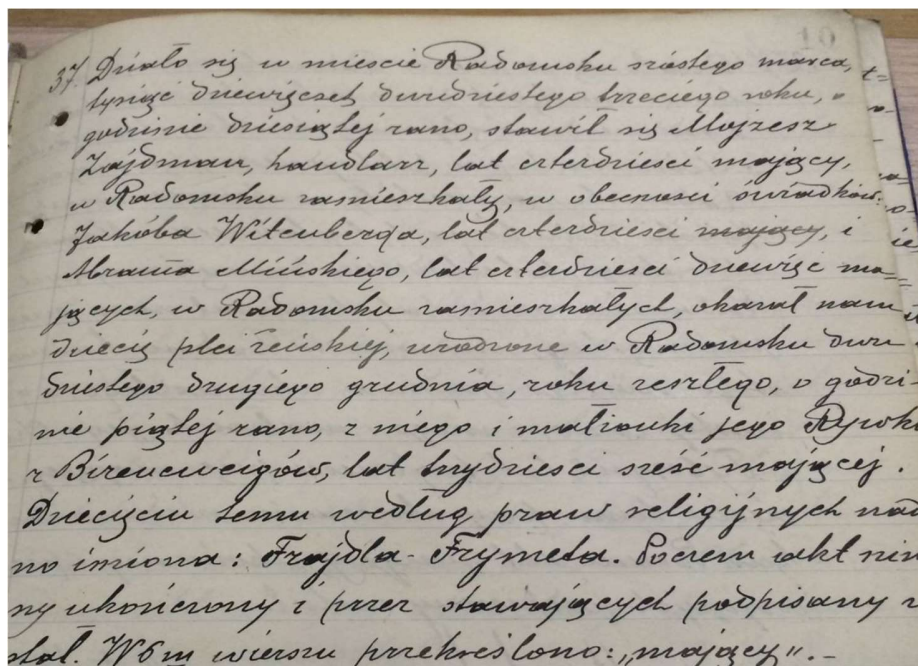 10
37. Działo się w mieście Radomsku szóstego marca,
tysiąc dziewięćset dwudziestego trzeciego roku, o
godzinie dziesiątej rano, stawił się Mojżesz
Zajdman, handlarz, lat czterdzieści mający,
w Radomsku zamieszkały, w obecności świadków:
Jakóba Witenberga, lat czterdzieści mający, i
Abrama Mińskiego, lat czterdzieści dziewięć ma=
jących, w Radomsku zamieszkałych, okazał nam
dziecię płci żeńskiej, urodzone w Radomsku dwu
dziestego drugiego grudnia, roku zeszłego, o godzi-
nie piątej rano, z niego i małżonki jego Rywki
z Birencweigów, lat trzydzieści sześć mającej.
Dziecięciu temu według praw religijnych nad
no imiona: Frajdla-Frymeta. Poczem akt nin
ny ukończony i przez stawających podpisany z
stał. W 6m wierszu przekreślono: „mający”.-